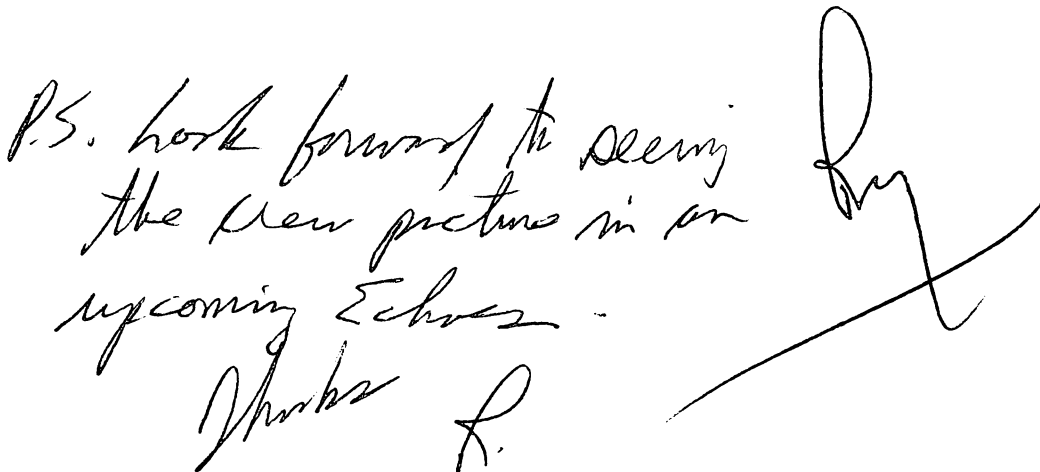 P.S. Look forward to seeing
the crew picture in an
upcoming Echoes.
Thanks
R.